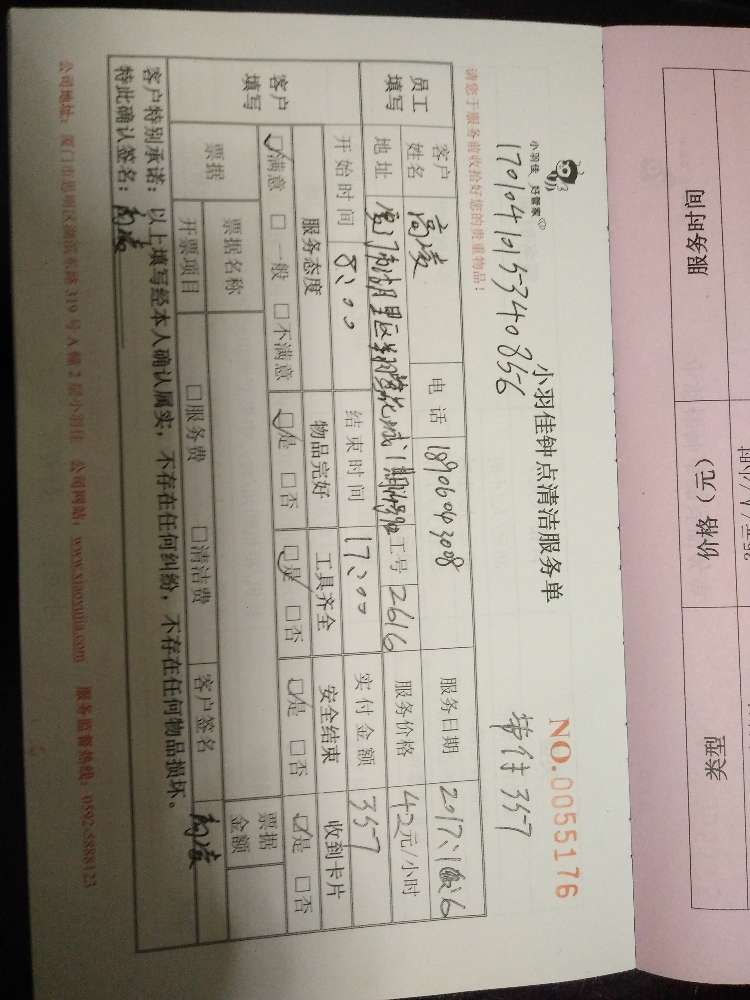 小羽佳 好管家
小羽佳钟点清洁服务单
NO.0055176
1701041015340856
357
请您于服务前收拾好您的贵重物品！
员工填写
客户姓名 高凌 电话 18906043008 服务日期 2017、1 6
地址 厦门市湖里区 工号 2616 服务价格 42元/小时
开始时间 8:00 结束时间 17:00 实付金额 357
客户填写
服务态度 物品完好 工具齐全 安全结束 收到卡片
☑满意 □一般 □不满意 ☑是 □否 ☑是 □否 ☑是 □否 ☑是 □否
票据 票据名称 票据金额
开票项目 □服务费 □清洁费 客户签名 高凌
客户特别承诺：以上填写经本人确认属实，不存在任何纠纷，不存在任何物品损坏。
特此确认签名：高凌
公司地址：厦门市思明区湖滨东路319号A幢2层小羽佳 公司网站：www.xiaoyujia.com 服务监督热线：0592-5888123
服务时间 价格（元） 类型
元/人/小时